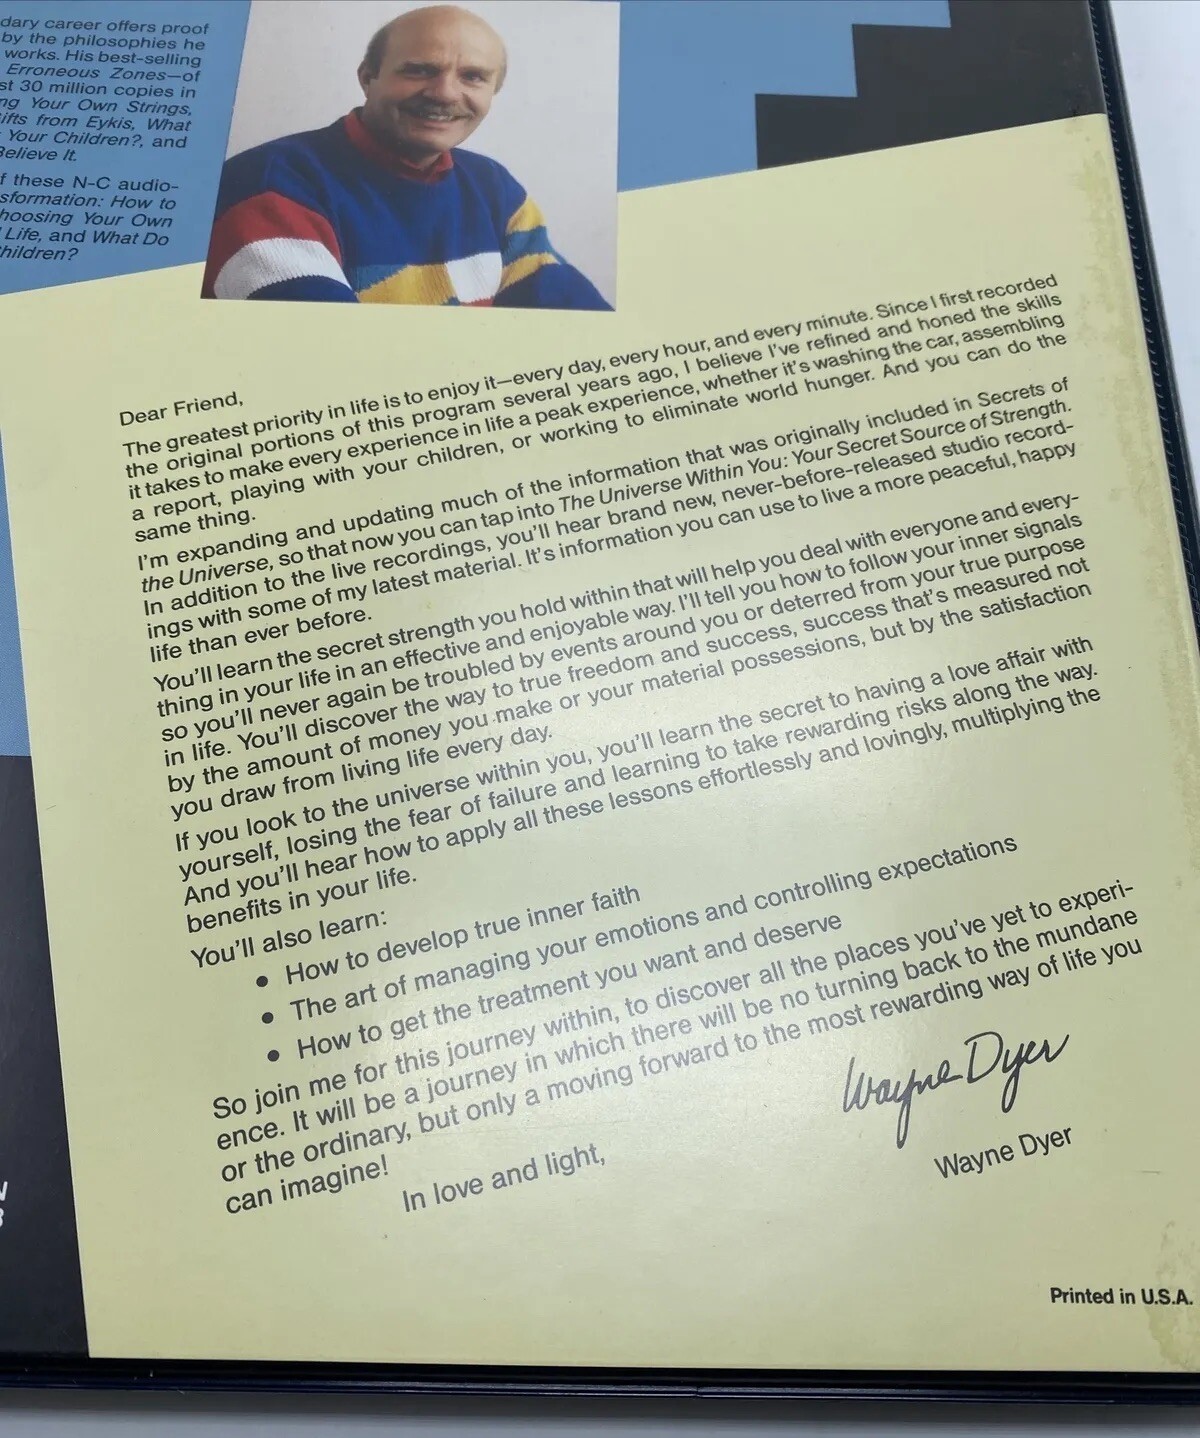 dary career offers proof
by the philosophies he
works. His best-selling
Erroneous Zones—of
st 30 million copies in
ng Your Own Strings,
ifts from Eykis, What
Your Children?, and
Believe It.
f these N-C audio-
sformation: How to
hoosing Your Own
Life, and What Do
hildren?
Dear Friend,
The greatest priority in life is to enjoy it—every day, every hour, and every minute. Since I first recorded
the original portions of this program several years ago, I believe I've refined and honed the skills
it takes to make every experience in life a peak experience, whether it's washing the car, assembling
a report, playing with your children, or working to eliminate world hunger. And you can do the
same thing.
I'm expanding and updating much of the information that was originally included in Secrets of
the Universe, so that now you can tap into The Universe Within You: Your Secret Source of Strength.
In addition to the live recordings, you'll hear brand new, never-before-released studio record-
ings with some of my latest material. It's information you can use to live a more peaceful, happy
life than ever before.
You'll learn the secret strength you hold within that will help you deal with everyone and every-
thing in your life in an effective and enjoyable way. I'll tell you how to follow your inner signals
so you'll never again be troubled by events around you or deterred from your true purpose
in life. You'll discover the way to true freedom and success, success that's measured not
by the amount of money you make or your material possessions, but by the satisfaction
you draw from living life every day.
If you look to the universe within you, you'll learn the secret to having a love affair with
yourself, losing the fear of failure and learning to take rewarding risks along the way.
And you'll hear how to apply all these lessons effortlessly and lovingly, multiplying the
benefits in your life.
You'll also learn:
• How to develop true inner faith
• The art of managing your emotions and controlling expectations
• How to get the treatment you want and deserve
So join me for this journey within, to discover all the places you've yet to experi-
ence. It will be a journey in which there will be no turning back to the mundane
or the ordinary, but only a moving forward to the most rewarding way of life you
can imagine!
In love and light,
Wayne Dyer
Wayne Dyer
Printed in U.S.A.